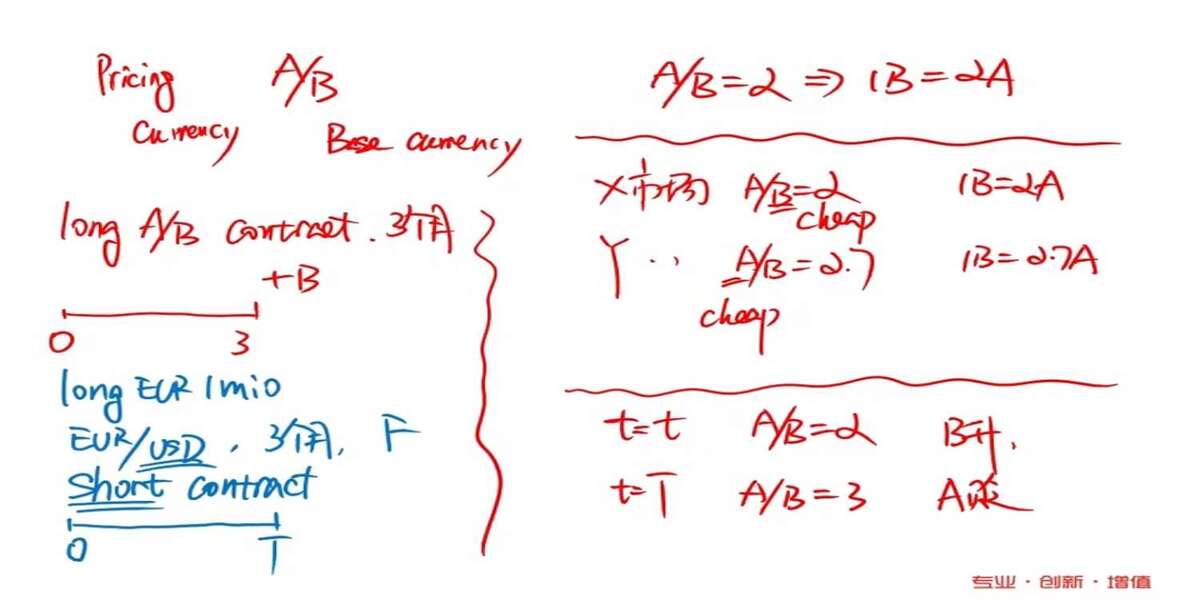 Pricing Currency
A/B
Base currency
long A/B contract. 3个月
+B
0 3
long EUR 1mio
EUR/USD, 3个月, F
Short contract
0 T
A/B=2 ⇒ 1B=2A
X市场 A/B=2 1B=2A
cheap
Y ·· A/B=2.7 1B=2.7A
cheap
t=t A/B=2 B升,
t=T A/B=3 A贬
专业·创新·增值